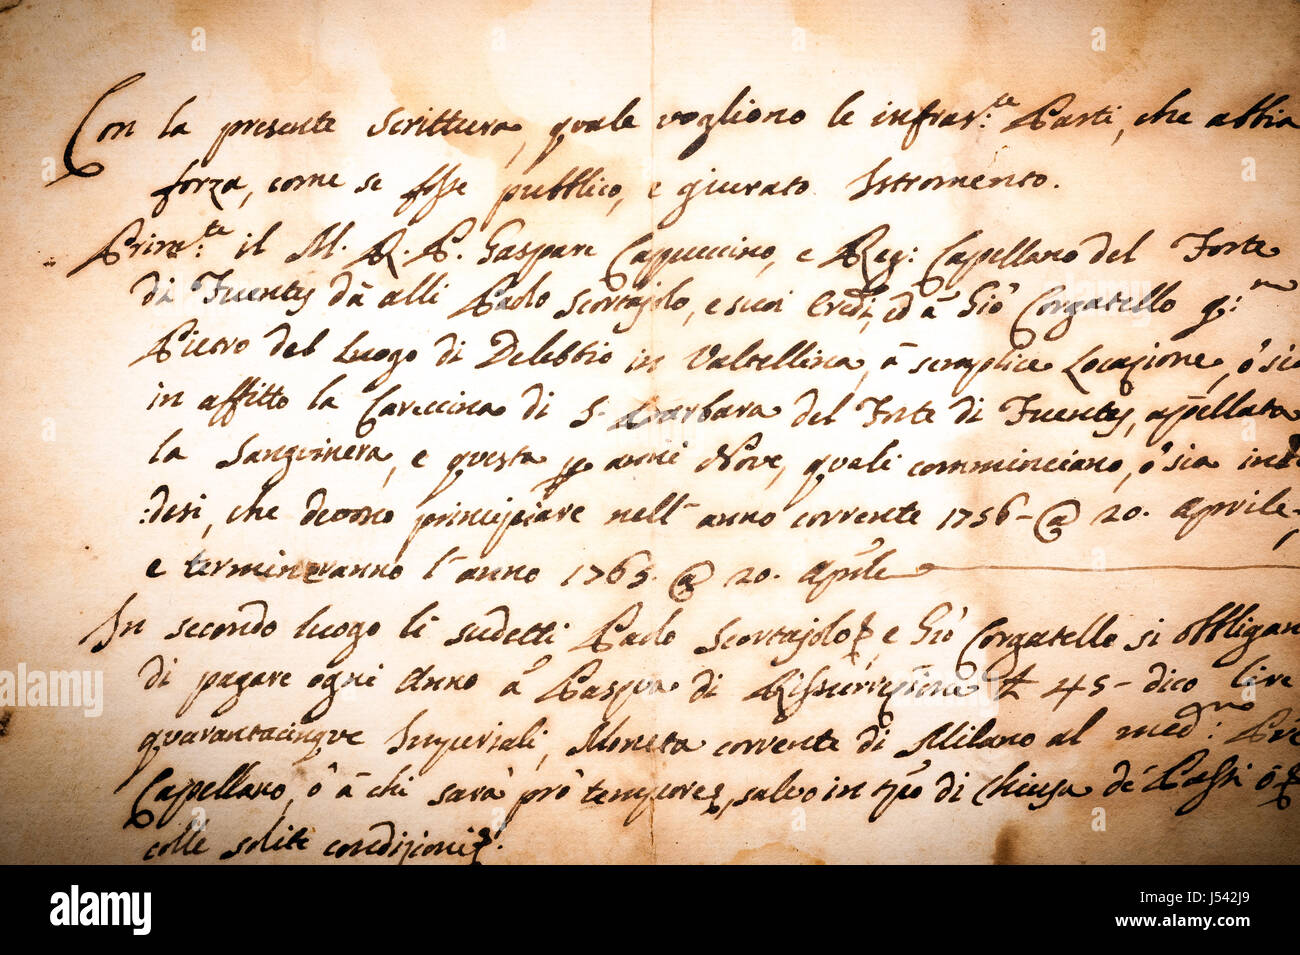 Con la presente Scrittura, quale vogliono le infras.te Parti, che abbia
forza, come se fosse pubblico, e giurato Istromento.
Prim.te il M. R. P. Gaspare Cappuccino, e Reg: Capellano del Forte
di Fuentes dà alli Paolo Scortajolo, e suoi Credi, ed à Gio' Corgatello q:m
Pietro del Luogo di Delebbio in Valtellina, à semplice Locazione, ò sia
in affitto la Careccina di S. Barbara del Forte di Fuentes, apellata
la Sanguinera, e questa p anni Nove, quali comminciano, ò sia
:desi, che devono principiare nell' anno corrente 1756 - @ 20. Aprile,
e termineranno l' anno 1765. @ 20. Aprile
In secondo luogo li sudetti Paolo Scortajolo, e Gio' Corgatello si obbligan
di pagare ogni Anno à Pasqua di Rissurrezione £ 45 - dico lire
quarantacinque Imperiali, Moneta corrente di Milano al med:mo
Capellano, ò à chi sarà prò tempore, salvo in tpo di Chiusa de' Passi ò
colle solite condizioni.
alamy
alamy
alamy
alamy
J542J9
www.alamy.com